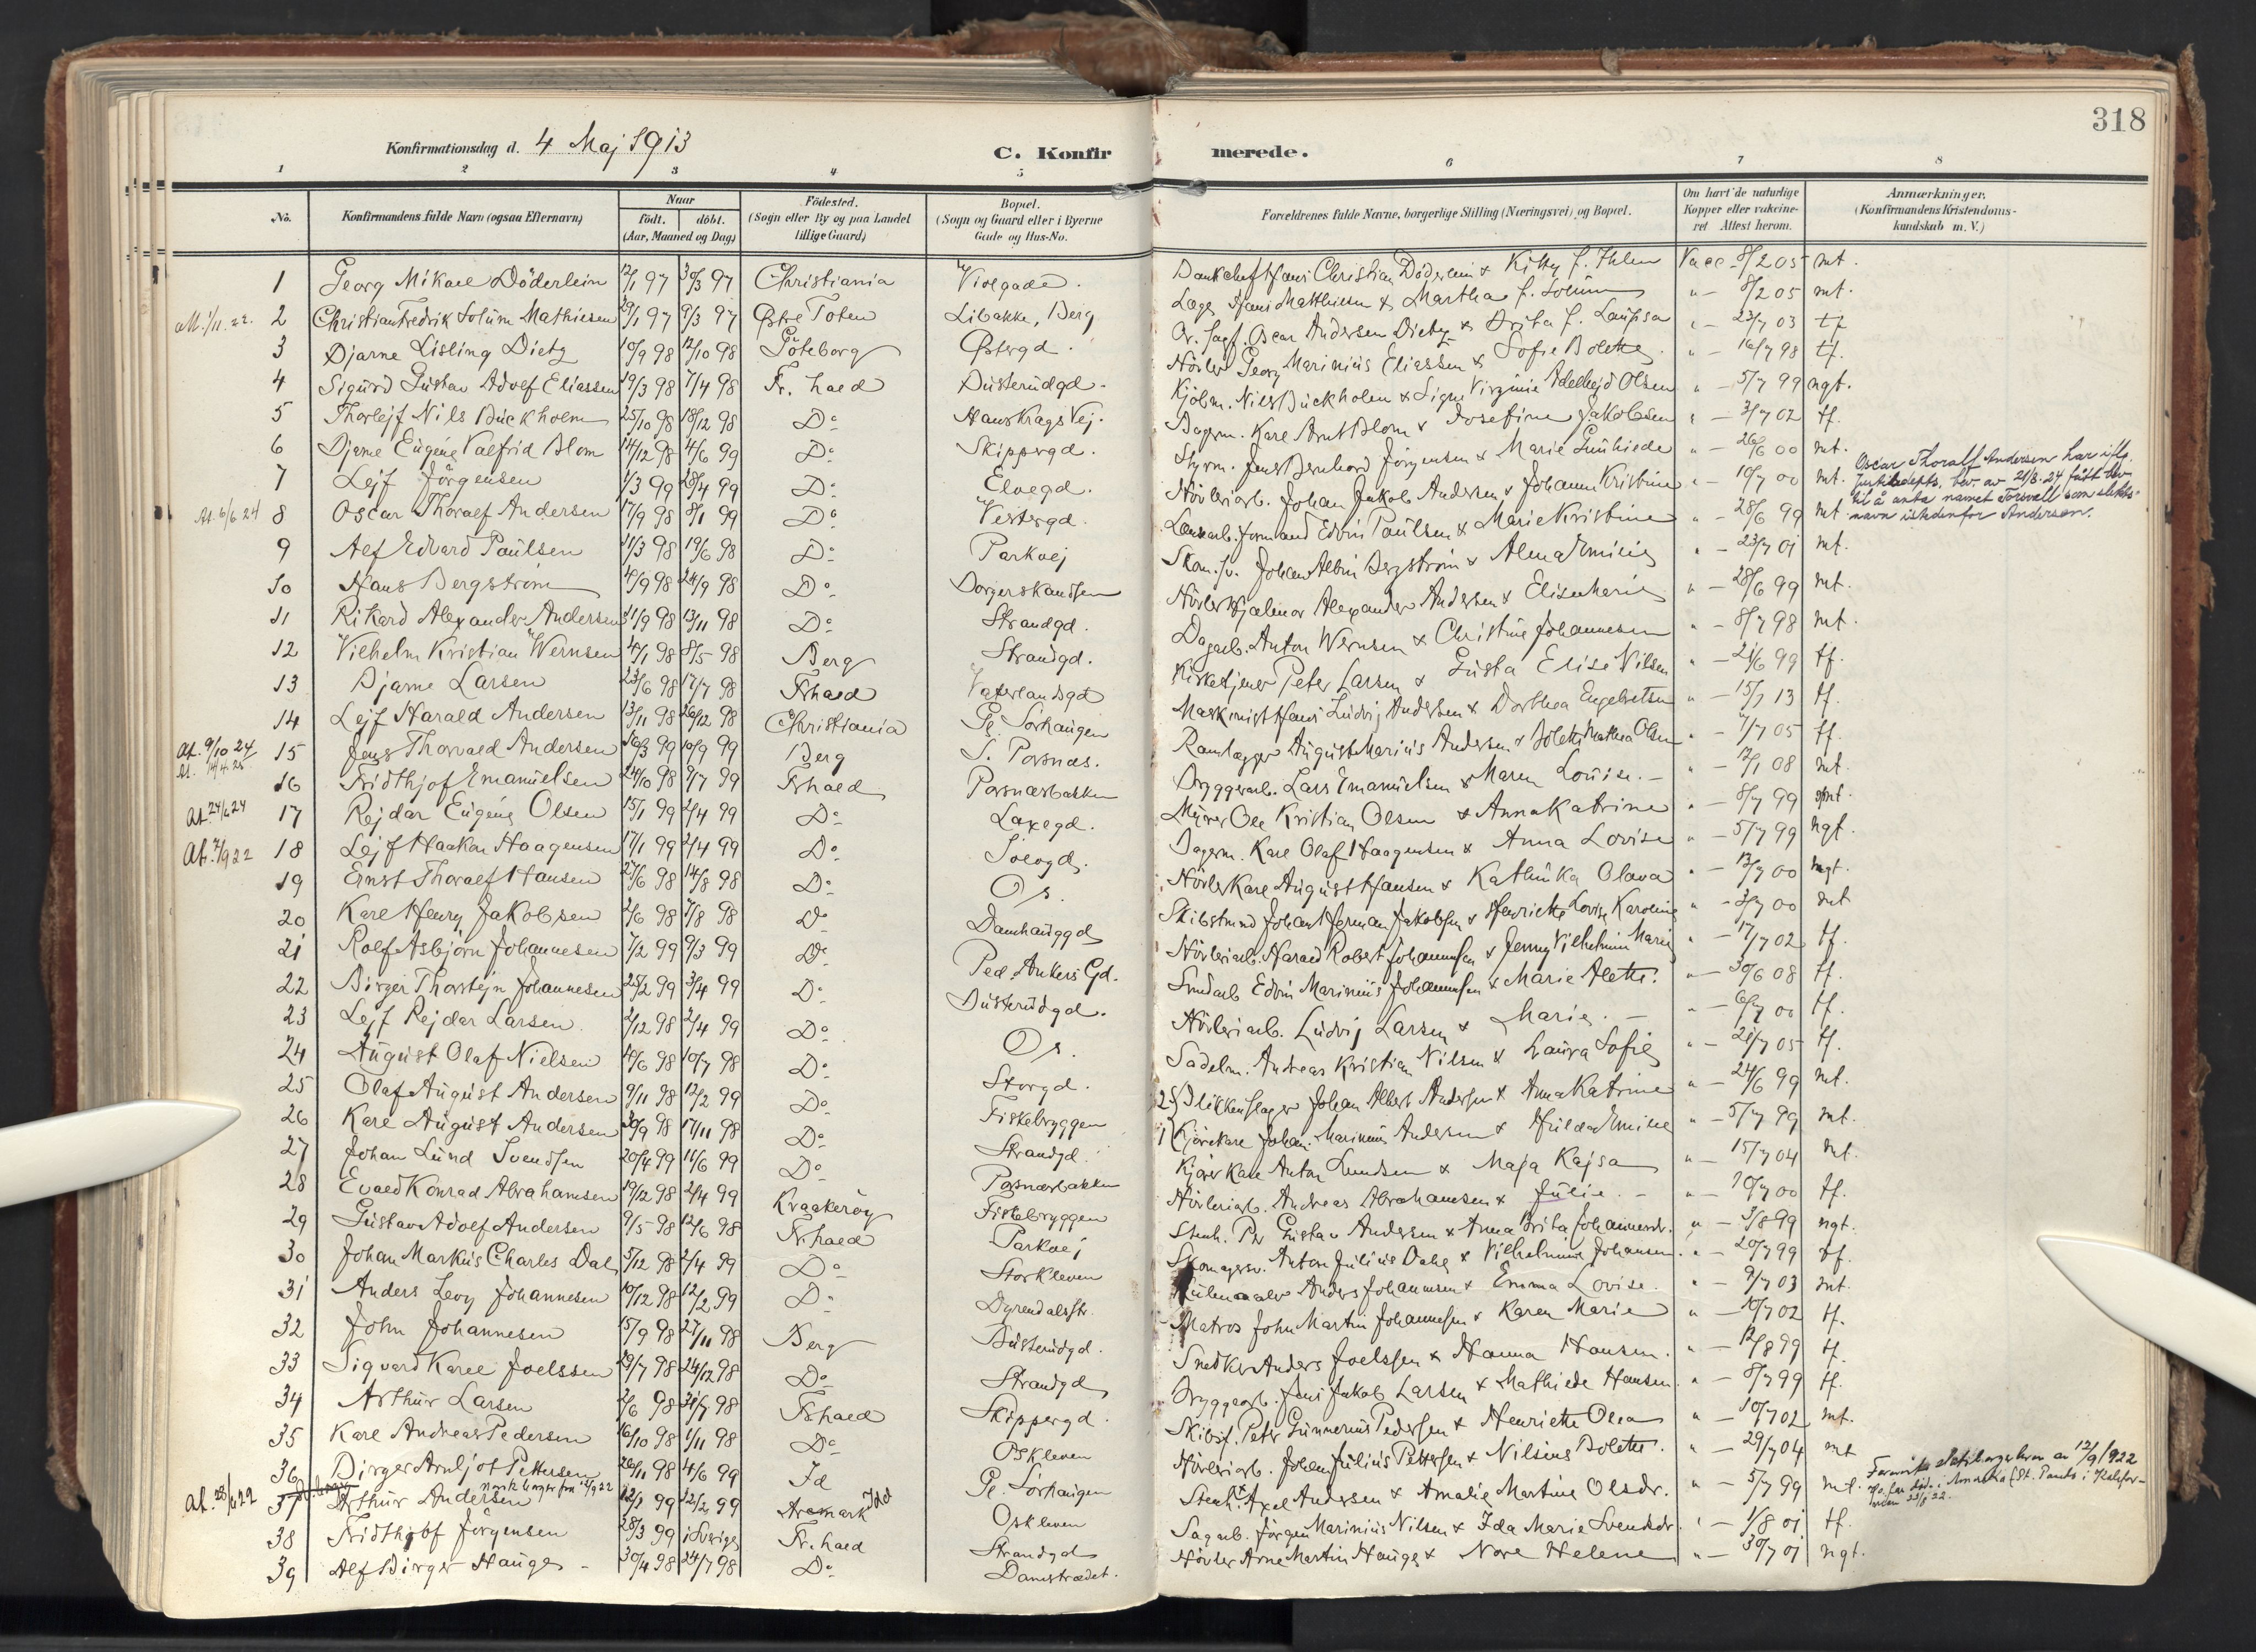 318
Konfirmationsdag d. 4 Maj 1913
C. Konfirmerede.
1 2 3 4 5 6 7 8
No. | Konfirmandens fulde Navn (ogsaa Efternavn) | Naar født. døbt. (Aar, Maaned og Dag) | Fødested. (Sogn eller By og paa Landet tillige Gaard) | Bopæl. (Sogn og Gaard eller i Byerne Gade og Hus-No. | Forældrenes fulde Navne, borgerlige Stilling (Næringsvei) og Bopæl. | Om havt de naturlige Kopper eller vaccineret Attest herom. | Anmærkninger. (Konfirmandens Kristendomskundskab m. V.)
1 Georg Mikael Döderlein 12/1 97 30/3 97 Christiania Violgade. Bankchef Hans Christian Döderlein & Kitty f. Ihlen Vacc - 8/2 05 mt.
2 Christian Fredrik Solum Mathiesen 29/1 97 9/3 97 Østre Toten Libakke, Berg Læge Hans Matthiesen & Martha f. Solum " - 8/2 05 mt.
3 Bjarne Lisling Dietz 10/9 98 12/10 98 Göteborg Østergd. Oscar Andersen Dietz & " - 23/7 03 tf
4 Sigurd Gustav Adolf Eliassen 19/3 98 7/4 98 Fr. hald Busterudgd. Høvler Georg Marinius Eliassen & Sofie Bolette " - 16/7 98 tf.
5 Thorlejf Nils Buckholm 25/10 98 18/12 98 Do Hans Krags Vej. Kjøbm. Niels Buckholm & Signe Virginie Adelhejd Olsen " - 5/7 99 ngt.
6 Bjarne Eugène Valfrid Blom 14/12 98 4/6 99 Do Skippergd. Bagerm. Karl Arnt Blom & Josefine Jakobsen " - 3/7 02 tf.
7 Lejf Jörgensen 1/3 99 23/4 99 Do Elvegd. Styrm. Jens Bernhard Jörgensen & Marie Gunhilde " - 26/6 00 mt.
At. 6/6 24 8 Oscar Thoralf Andersen 17/9 98 8/1 99 Do Vestergd. Høvleriarb. Johan Jakob Andersen & Johanne Kristine " - 10/7 00 mt.
Oscar Thoralf Andersen har iflg.
Justisdepts. bev. av 21/8-24 fått bev.
til å anta navnet Torsvall som slekts-
navn istedenfor Andersen.
9 Alf Edvard Paulsen 11/3 98 19/6 98 Do Parkvej Formand Edvin Paulsen & Marie Kristine " - 28/6 99 mt
10 Hans Bergström 4/9 98 24/9 98 Do Borgerskandsen Johan Albin Bergström & Alma Emilie " - 23/7 01 mt.
11 Rikard Alexander Andersen 11/9 98 13/11 98 Do Strandgd. Høvler Hjalmar Alexander Andersen & Elise Marie " - 28/6 99 mt.
12 Vilhelm Kristian Wernsen 4/1 98 8/5 98 Berg Strandgd. Dagarb. Anton Wernsen & Christine Johannesen " - 8/7 98 mt.
13 Bjarne Larsen 23/6 98 17/7 98 Frhald Vaterlandsgd Kirketjener Peter Larsen & Gusta Elise Nilsen " - 21/6 99 tf.
14 Lejf Harald Andersen 13/11 98 26/12 98 Christiania Gl. Sorhaugen Maskinist Hans Ludvig Andersen & Dorthea Engebretsen " - 15/7 13 tf.
At. 9/10 24 15 Jens Thorvald Andersen 16/3 99 10/9 99 Berg S. Porsnæs. August Marius Andersen & Bolette Mathea Olsen " - 4/7 05 tf.
16 Fridthjof Emanuelsen 24/10 98 9/7 99 Frhald Porsnæsbakken Bryggearb. Lars Emanuelsen & Maren Louise. - " - 12/1 08 mt.
At. 24/6 24 17 Rejdar Eugène Olsen 15/1 99 2/4 99 Do Laxegd. Murer Ole Kristian Olsen & Anna Katrine " - 8/7 99 mt.
At. 7/9 22 18 Lejf Haakon Haagensen 17/1 99 2/4 99 Do Solvgd. Bagerm. Karl Olaf Haagensen & Anna Lovise " - 5/7 99 ngt.
19 Ernst Thoralf Hansen 27/6 98 14/8 98 Do Os. Høvler Karl August Hansen & Kathinka Olava " - 13/7 00 mgt.
20 Karl Henry Jakobsen 2/6 98 7/8 98 Do Damhauggd Johan Herman Jakobsen & Henriette Lovise Karoline " - 3/7 00 mt
21 Rolf Asbjörn Johannesen 7/2 99 9/3 99 Do Ped. Ankers Gd. Høvleriarb. Harald Robert Johannesen & Jenny Vilhelmine Marie " - 17/7 02 tf.
22 Birger Thorstejn Johannesen 25/2 99 3/4 99 Do Busterudgd. Edvin Marinius Johannesen & Marie Alette. " - 30/6 08 tf.
23 Lejf Rejdar Larsen 2/12 98 2/4 99 Do Os. Høvleriarb. Ludvig Larsen & Marie. - " - 6/7 00 tf.
24 August Olaf Nielsen 4/6 98 10/7 98 Do Storgd. Sadelm. Andreas Kristian Nilsen & Laura Sofie " - 21/7 05 tf.
25 Olaf August Andersen 9/11 98 12/2 99 Do Fiskebryggen Blikkenslager Johan Albert Andersen & Anna Katrine " - 24/6 99 mt.
26 Karl August Andersen 30/9 98 17/11 98 Do Strandgd. Kjørekarl Johan Marinius Andersen & Hulda Emilie " - 5/7 99 mt.
27 Johan Lund Svendsen 20/4 99 11/6 99 Do Porsnæsbakken Kjørekarl Anton Svendsen & Maja Kajsa " - 15/7 04 mt.
28 Evald Konrad Abrahamsen 19/12 98 2/4 99 Kraakerøy Fiskebryggen Høvleriarb. Andreas Abrahamsen & Julie. - " - 10/7 00 tf.
29 Gustav Adolf Andersen 9/5 98 12/6 98 Fr. hald Parkvej Stenh. Per Gustav Andersen & Anna Brita Johannesdr. " - 3/8 99 ngt.
30 Johan Markus Charles Dal 5/12 98 2/4 99 Do Storkleven Skomagersv. Anton Julius Dahl & Vilhelmine Johansen. " - 20/7 99 tf.
31 Anders Levy Johannesen 10/12 98 12/2 99 Do Dyrendalsstr. Anders Johannesen & Emma Lovise. " - 9/7 03 mt.
32 John Johannesen 15/9 98 27/11 98 Berg Busterudgd. Matros John Martin Johannesen & Karen Marie " - 10/7 02 tf.
33 Sigvard Karl Joelssen 29/7 98 24/12 98 Do Strandgd Snedker Anders Joelssen & Hanna Hansen. " - 12/8 99 tf.
34 Arthur Larsen 2/6 98 31/7 98 Frhald Skippergd. Bryggearb. Jens Jakob Larsen & Mathilde Hansen. " - 8/7 99 tf.
35 Karl Andreas Pedersen 16/10 98 1/11 98 Do Oskleven Skibsf. Peter Gunnerius Pedersen & Henriette Olea " - 10/7 02 mt.
36 Birger Arnljot Pettersen 26/11 98 4/6 99 Id Gl. Sorhaugen Høvleriarb. Johan Julius Pettersen & Nilsine Bolette. " - 29/7 04 mt
norsk borger fra 12/9 22
At. 28/6 22 37 Arthur Andersen 12/1 99 12/2 99 Aremark Idd Oskleven Stenh. Axel Andersen & Amalie Martine Olsdr. " - 5/7 99 mt.
38 Fridthjof Jörgensen 28/3 99 i Sverige Fr. hald Strandgd Sagarb. Jörgen Marinius Nilsen & Ida Marie Svendsdr. " - 1/8 01 tf.
39 Alf Birger Hauge - 30/4 98 24/7 98 Do Damstrædet. Høvler Arne Martin Hauge & Nora Helene " - 30/7 01 ngt.